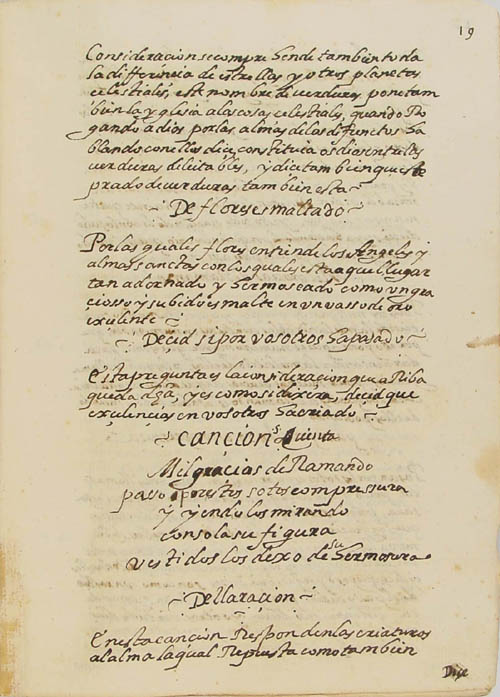 19
Consideracion se compre hende tambien toda
la differencia de estrellas y otros planetas
celestiales, este nombre de verduras pone tam
bien la yglesia a las cosas celestiales, quando Ro
gando a dios por las almas de los difunctos ha
blando con ellos dice, constituia os dios en tales
verduras deleitables, y dice tambien que este
prado de verduras tambien esta
De flores esmaltado
Por las quales flores entiende los Angeles y
almas sanctas con los quales esta aquel lugar
tan adornado y hermoseado como vn gra
cioso y subido esmalte en vn vasso de oro
excelente
Decid si por vosotros ha pasado
esta pregunta es la consideracion que a Riba
queda dha, y es como si dixera, decid que
excelencias en vosotros ha criado
Cancion quinta
Mil gracias de Ramando
paso por estos sotos con pressura
y yendo los mirando
con sola su figura
vestidos los dexo de su hermosura
Declaracion
en esta cancion Responden las criaturas
al alma la qual Repuesta como tambien
Dice